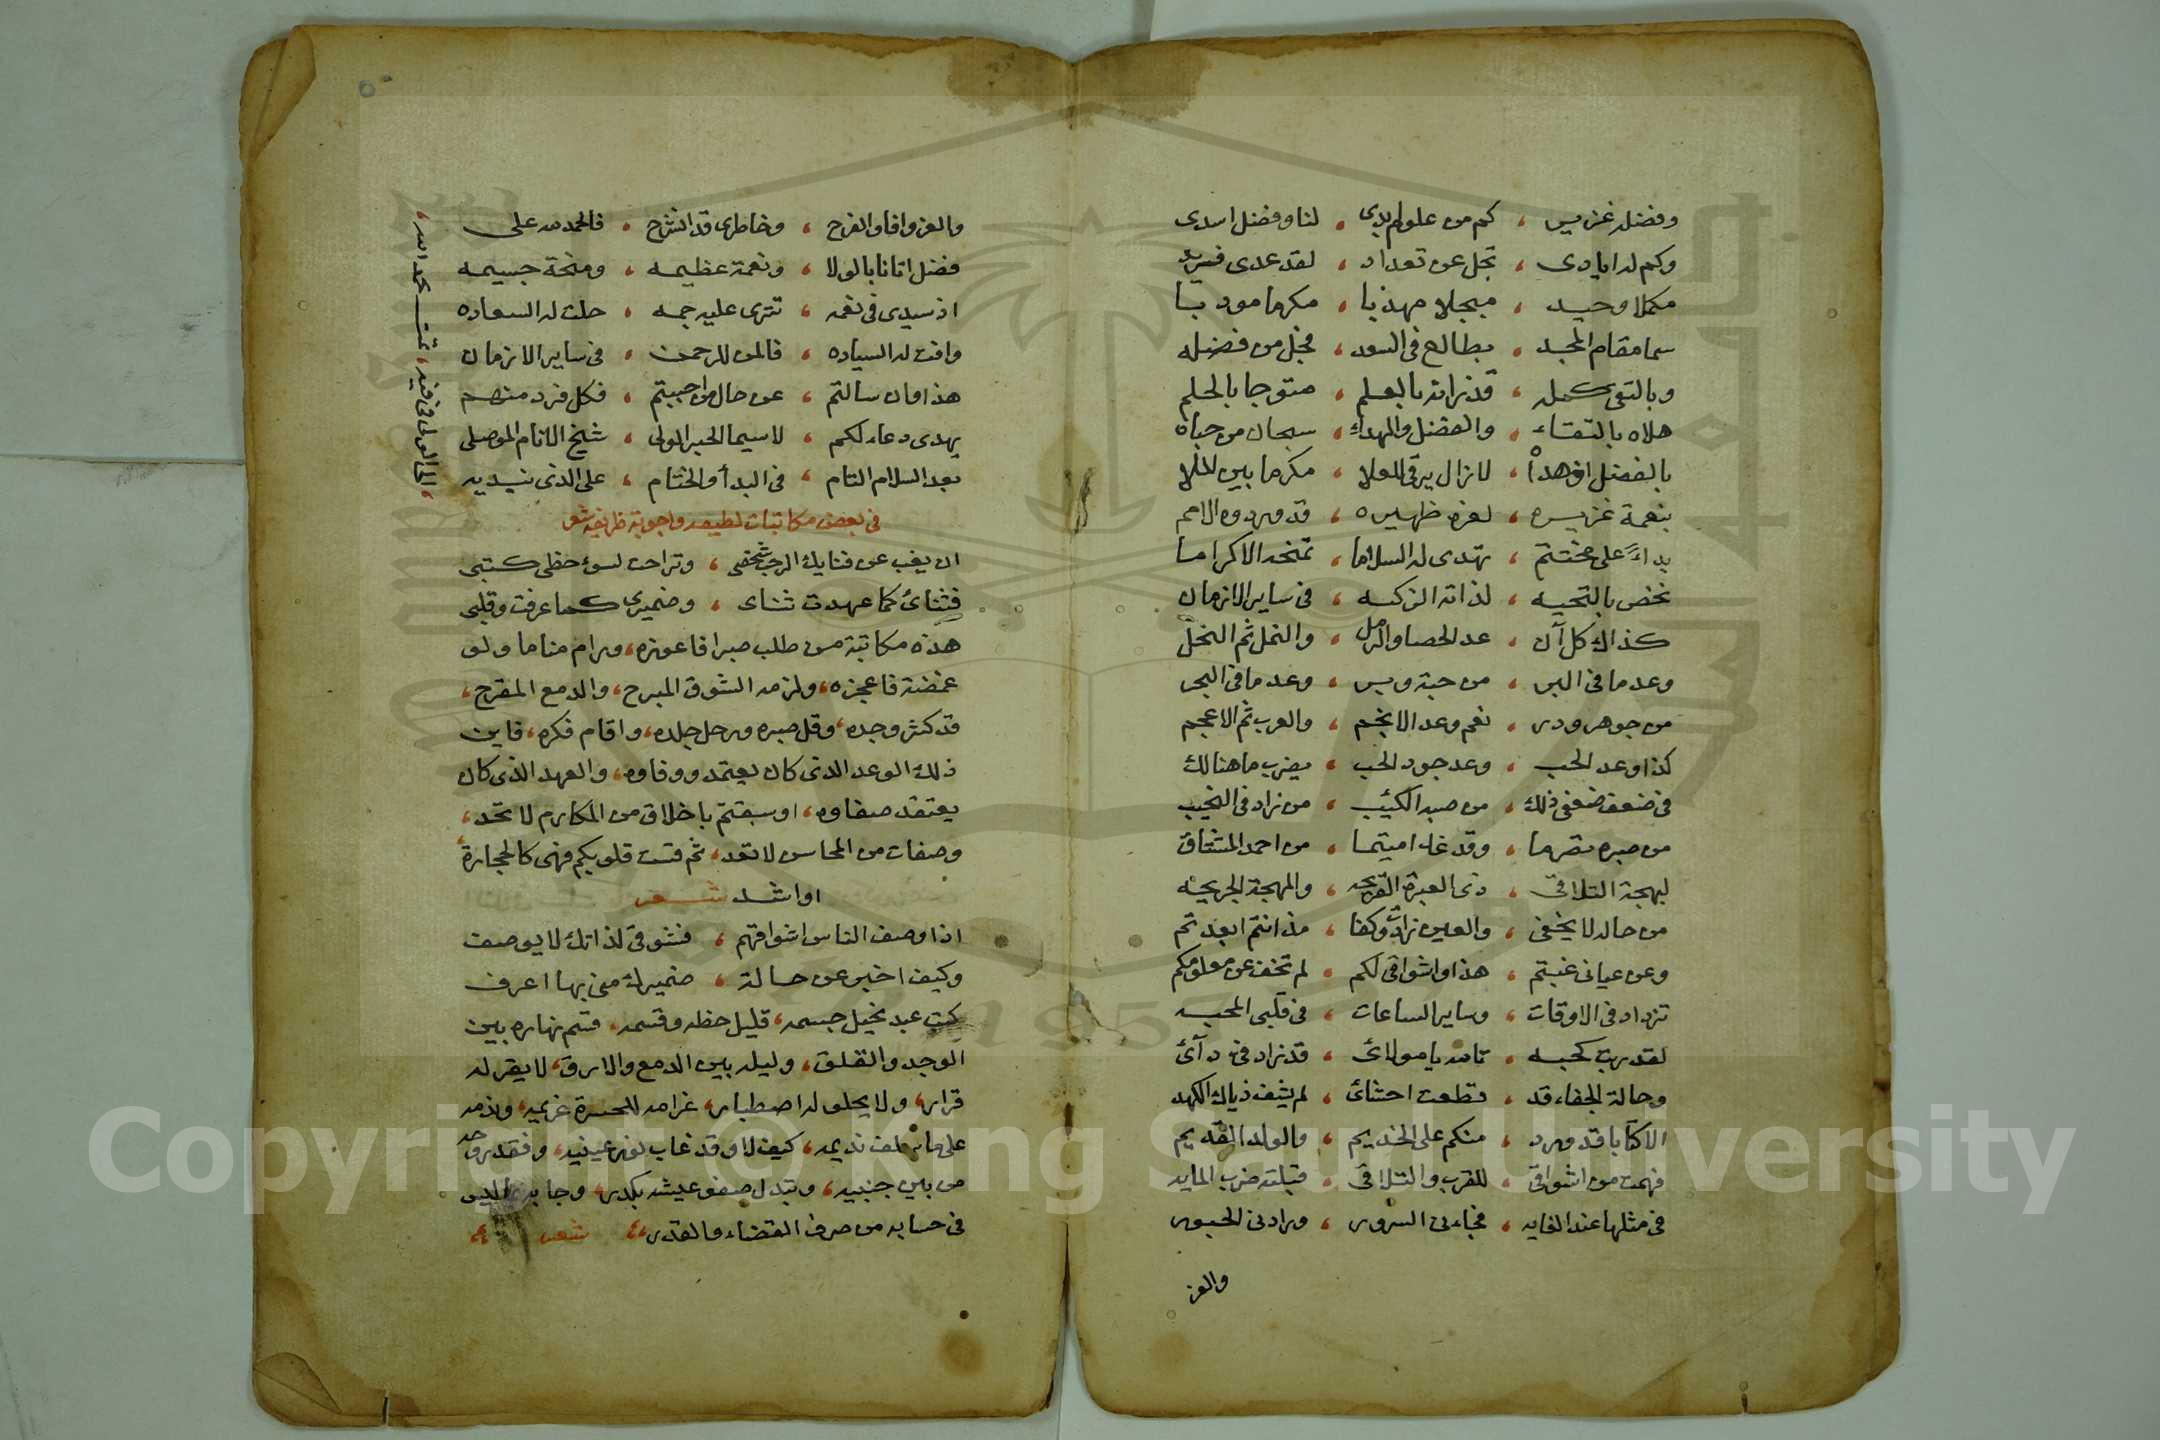 وفضله غزير ، كم من علوم يدي ، لنا وفضل اسدى
وكم له ايادي ، تجل عن تعداد ، لقد غدى فريد
مكملا وحيد ، مبجلا مهذبا ، مكرما مودبا
سما مقام المجد ، بطالع في السعد ، فجل من فضله
وبالتقى كمله ، قد زانه بالعلم ، متوجا بالحلم
حلاه بالتقاء ، والفضل والهداء ، سبحان من حباه
بالفضل اذ هداه ، لا زال يرقى للعلا ، مكرما بين الملا
بنعمة غزيره ، لعزه ظهيره ، قد
بداءً على مختتم ، تهدى له السلاما ، تمنحه الاكراما
نخص بالتحيه ، لذاته الزكيه ، في ساير الازمان
كذاك كل آن ، عد الحصا والرمل ، والنمل ثم النخل
وعد ما في البر ، من حبة وبر ، وعد ما في البحر
من جوهر ودر ، نعم وعد الانجم ، والعرب ثم الاعجم
كذا وعد الحب ، وعد جود الحب ، يضرب ما هنالك
في ضعف ضعفي ذلك ، من صبه الكئيب ، من زاد في النحيب
من صبره تصرما ، وقد غدا متيما ، من احمد المشتاق
لبهجة التلاقي ، ذي العبرة القريحه ، والمهجة الجريحه
من حاله لا يخفى ، والعين زادت وكفا ، مذ انتم ابعدتم
وعن عياني غبتم ، هذا واشواقي لكم ، لم تخف عن معلومكم
تزداد في الاوقات ، وساير الساعات ، في قلبي المحب
لقد ربت كحبه ، تالله يا مولائ ، قد زاد في دآئ
وحالة الجفاء قد ، قطعت احشائ ، لم يشف ذياك الكمد
الا كتابا قد ورد ، منكم على الخديم ، والولد القديم
فهمت من اشواقي ، للقرب والتلاقي ، قبلته ضرب المايه
في مثلها عند الغايه ، فجاءني السرور ، وزادني الحبور
والعز
والعز وافا والفرح ، وخاطري قد انشرح ، فالحمد لله على
فضل اتانا بالولا ، ونعمة عظيمه ، ومنحة جسيمه
اذ سيدي في نعمه ، تترى عليه جمه ، حلت له السعاده
وافت له السياده ، فالمن للرحمن ، في ساير الازمان
هذا وان سالتم ، عن حال من احببتم ، فكل فرد منهم
يهدي دعاء لكم ، لا سيما الحبر الولي ، شيخ الانام الموصلي
بعد السلام التام ، في البدأ والختام ، على الذي نبديه
الى الولي في فيه ، تمت بحمد الله ،
في بعض مكاتبات لطيفه واجوبة ظريفه شعر
ان يغب عن فنايك الرحب شخصي ، وتراخت لسوء حظي كتبي
فثنائ كما عهدت ثنائ ، وضميري كما عرفت وقلبي
هذه مكاتبة من طلب صبرا فاعوزه ، ورام مناما ولو
غمضة فاعجزه ، ولزمه الشوق المبرح ، والدمع المقرح ،
قد كثر وجده ، وقل صبره ورحل جلده ، واقام فكره ، فاين
ذلك الوعد الذي كان يعتمد ووفاوه ، والعهد الذي كان
يعتقد صفاوه ، او سبقتم باخلاق من المكارم لا تحد ،
وصفات من المحاسن لا تعد ، ثم قست قلوبكم فهي كالحجارة
او اشد شعر
اذا وصف الناس اشواقهم ، فشوقي لذاتك لا يوصف
وكيف اخبر عن حالة ، ضميرك مني بها اعرف
كتب عبد نحيل جسمه ، قليل حظه وقسمه ، قسم نهاره بين
الوجد والقلق ، وليله بين الدمع والارق ، لا يقر له
قرار ، ولا يحلو له اصطبار ، غرامه للحسرة غريمه ، وندمه
على ما سلف نديمه ، كيف لا وقد غاب نور عينيه ، وفقد روحه
من بين جنبيه ، وتبدل صفو عيشه بكدر ، وجا به ما ليس
في حسابه من صرف القضاء والقدر ، شعر
Copyright © King Saud University
1957